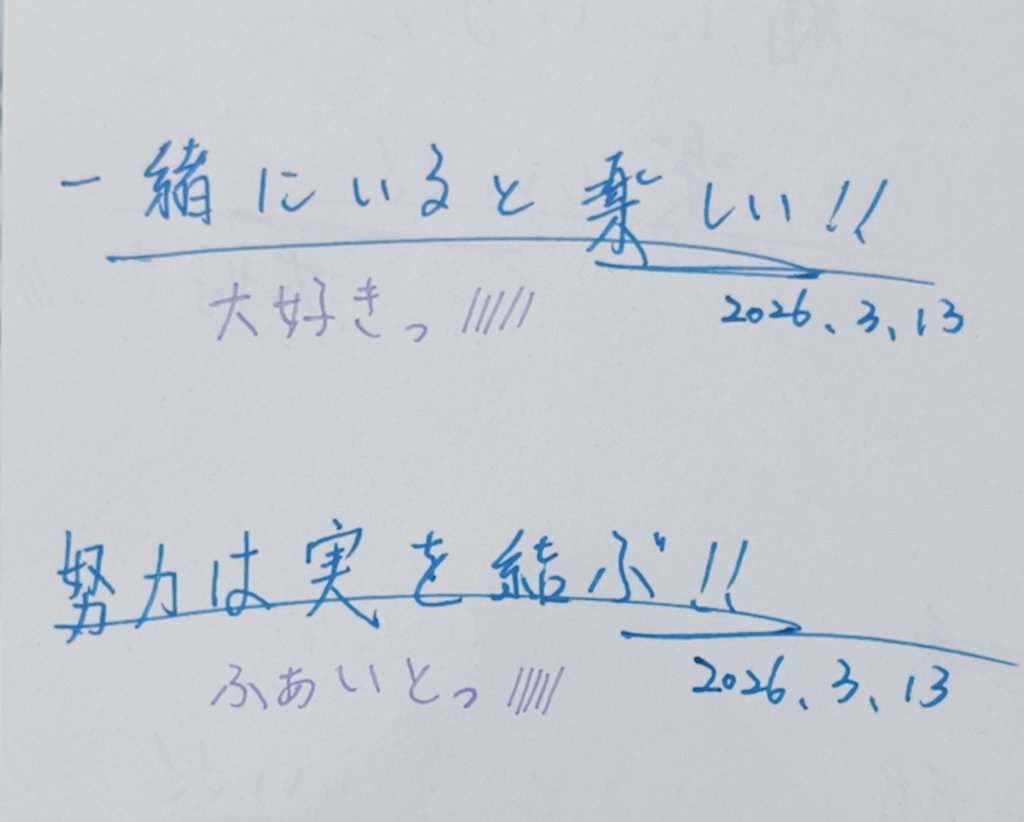 一緒にいると楽しい!!
大好きっ /////
2026.3.13
努力は実を結ぶ!!
ふぁいとっ /////
2026.3.13